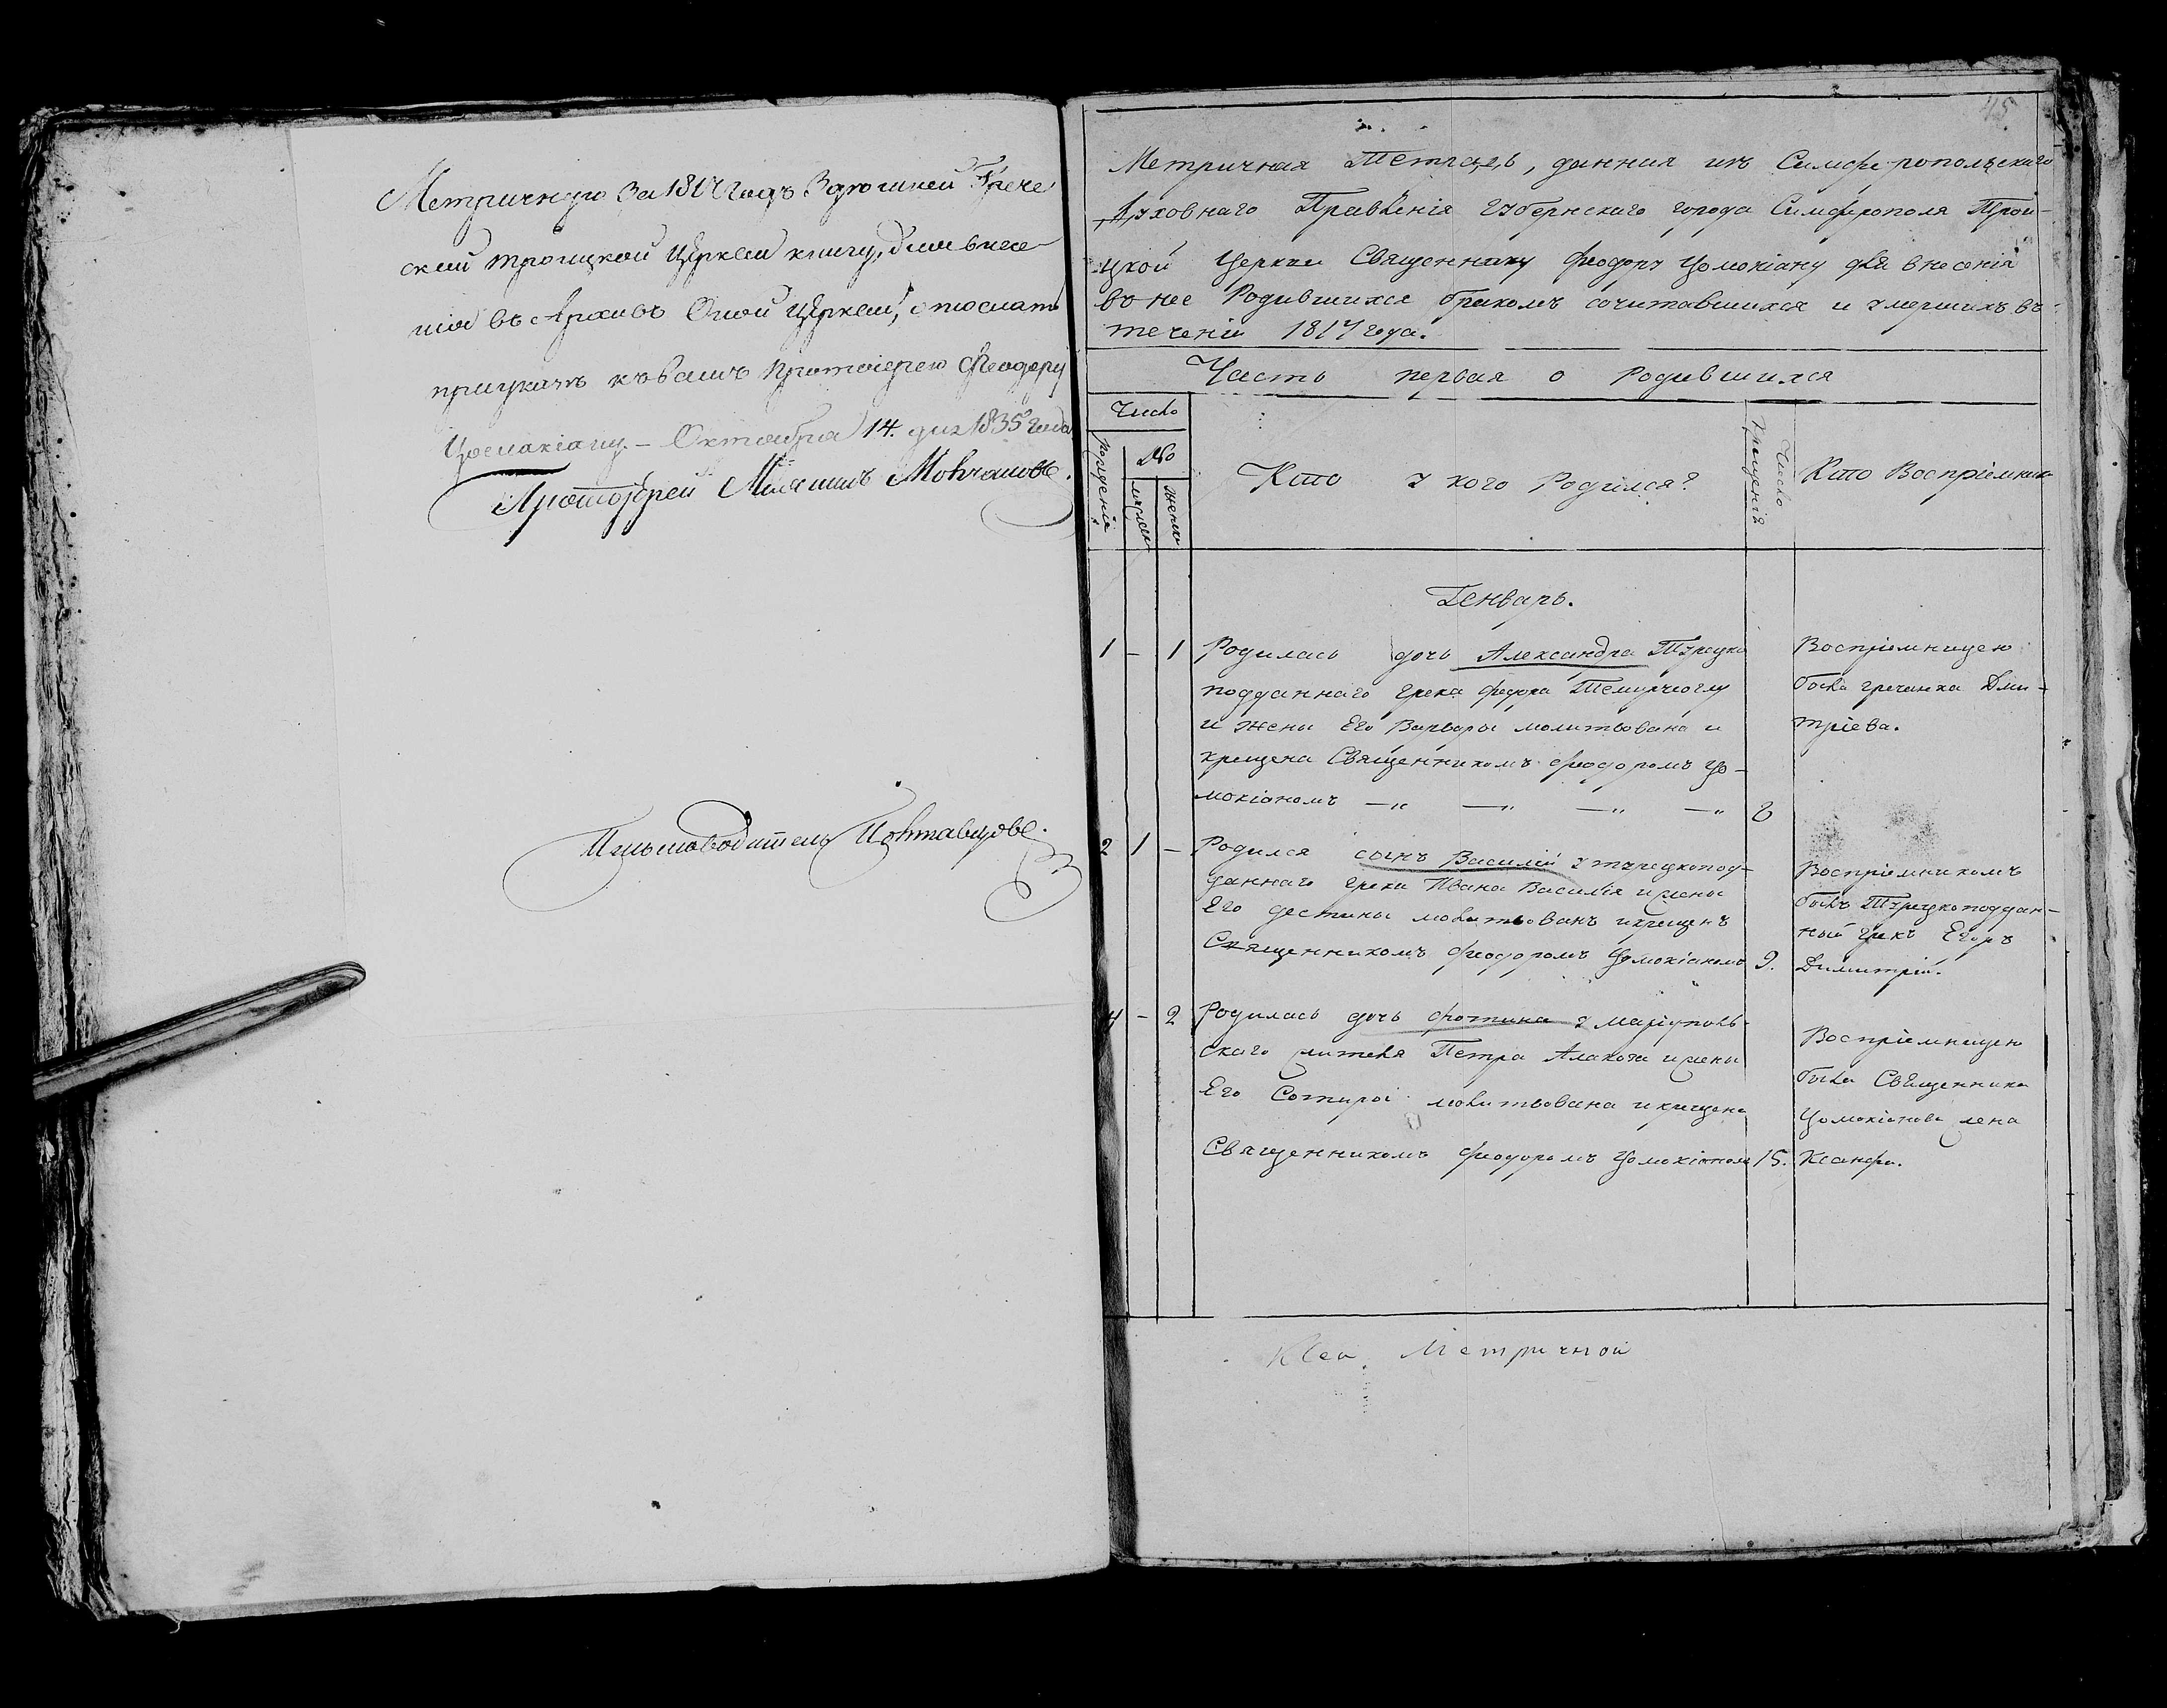 Метричную за 1817 годъ здѣшней Грече
ской троицкой Церкви книгу, для внесе
нія въ Архивъ Оной Церкви, отослать
при указѣ къ вамъ Протоіерею Феодору
Цомакіану. — Октября 14. дня 1835 года
Протоіерей Михаилъ Молчановъ.
Письмоводитель Полтавцовъ.
45
Метричная Тетрадь, данная изъ Симферопольскаго
Духовнаго Правленія губернскаго города Симферополя Трои-
цкой церкви Священнику Феодору Цомокіану для внесенія
въ нее Родившихся бракомъ сочитавшихся и умершихъ въ
теченіи 1817 года.
Часть первая о Родившихся
Число рожденія
№
мужеск
женск
Кто у кого Родился?
Число крещенія
Кто Воспріемник
Генварь.
1 – 1 Родилась дочь Александра Турецко
подданнаго грека Федора Темурчіоглу
и жены Его Варвары молитвована и
крещена Священникомъ Феодоромъ Цо-
мокіаномъ —„ —„ —„ —„ 8
Воспріемницею
была гречанка Дми-
тріева.
2 1 – Родился сынъ Василій у турецкопод-
даннаго грека Ивана Василія и жены
Его Деспины молитвованъ и крещенъ
Священникомъ Феодоромъ Цомокіаномъ 9.
Воспріемникомъ
былъ Турецкоподдан-
ный грекъ Егоръ
Димитрій.
4 – 2 Родилась дочь Фотина у маріуполь-
скаго жителя Петра Алахоза и жены
Его Сотиры молитвована и крещена
Священникомъ Феодоромъ Цомокіаномъ 15.
Воспріемницею
была Священника
Цомокіанова жена
Ксанфи.
Метричной